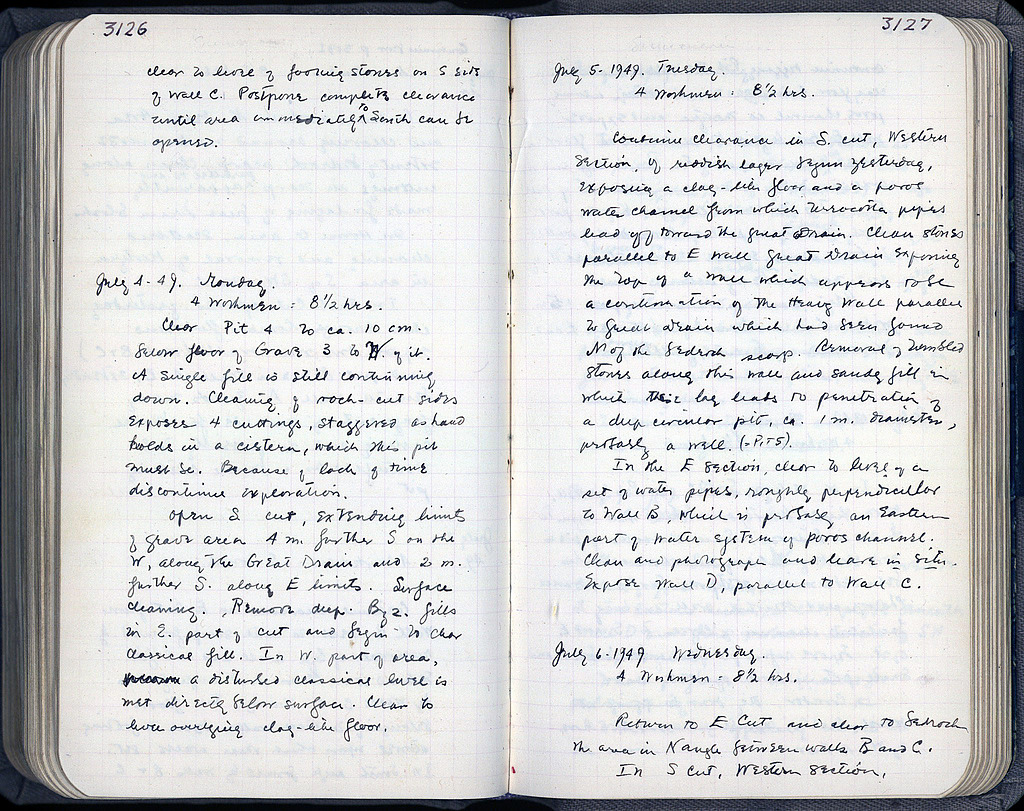 3126
clear to level of footing stones on S side
of Wall C. Postpone complete clearance
until area immediately to South can be
opened.
July 4-49. Monday.
4 Workmen = 8 1/2 hrs.
Clear Pit 4 to ca. 10 cm.
below floor of Grave 3 to W of it.
A single fill is still continuing
down. Cleaning of rock-cut sides
exposes 4 cuttings, staggered as hand
holds in a cistern, which this pit
must be. Because of lack of time
discontinue exploration.
Open S cut, extending limits
of grave area 4 m. further S on the
W, along the Great Drain and 2 m.
further S. along E limits. Surface
cleaning. Remove deep Byz. fills
in E. part of cut and begin to clear
classical fill. In W. part of area,
a disturbed classical level is
met directly below surface. Clear to
level overlying clay-like floor.
3127
July 5-1949. Tuesday.
4 Workmen = 8 1/2 hrs.
Continue clearance in S. cut, Western
Section, of reddish layer begun yesterday,
exposing a clay-like floor and a poros
water channel from which terracotta pipes
lead off toward the Great Drain. Clean stones
parallel to E wall Great Drain exposing
the top of a wall which appears to be
a continuation of the Heavy Wall parallel
to Great Drain which had been found
N of the bedrock scarp. Removal of tumbled
stones along this wall and sandy fill in
which they lay leads to penetration of
a deep circular pit, ca. 1 m. diameter,
probably a well. (= Pit 5).
In the E section, clear to level of a
set of water pipes, roughly perpendicular
to Wall B, which is probably an Eastern
part of water system of poros channel.
Clean and photograph and leave in situ.
Expose Wall D, parallel to Wall C.
July 6-1949 Wednesday.
4 Workmen = 8 1/2 hrs.
Return to E Cut and clear to bedrock
the area in N angle between walls B and C.
In S cut, Western Section,